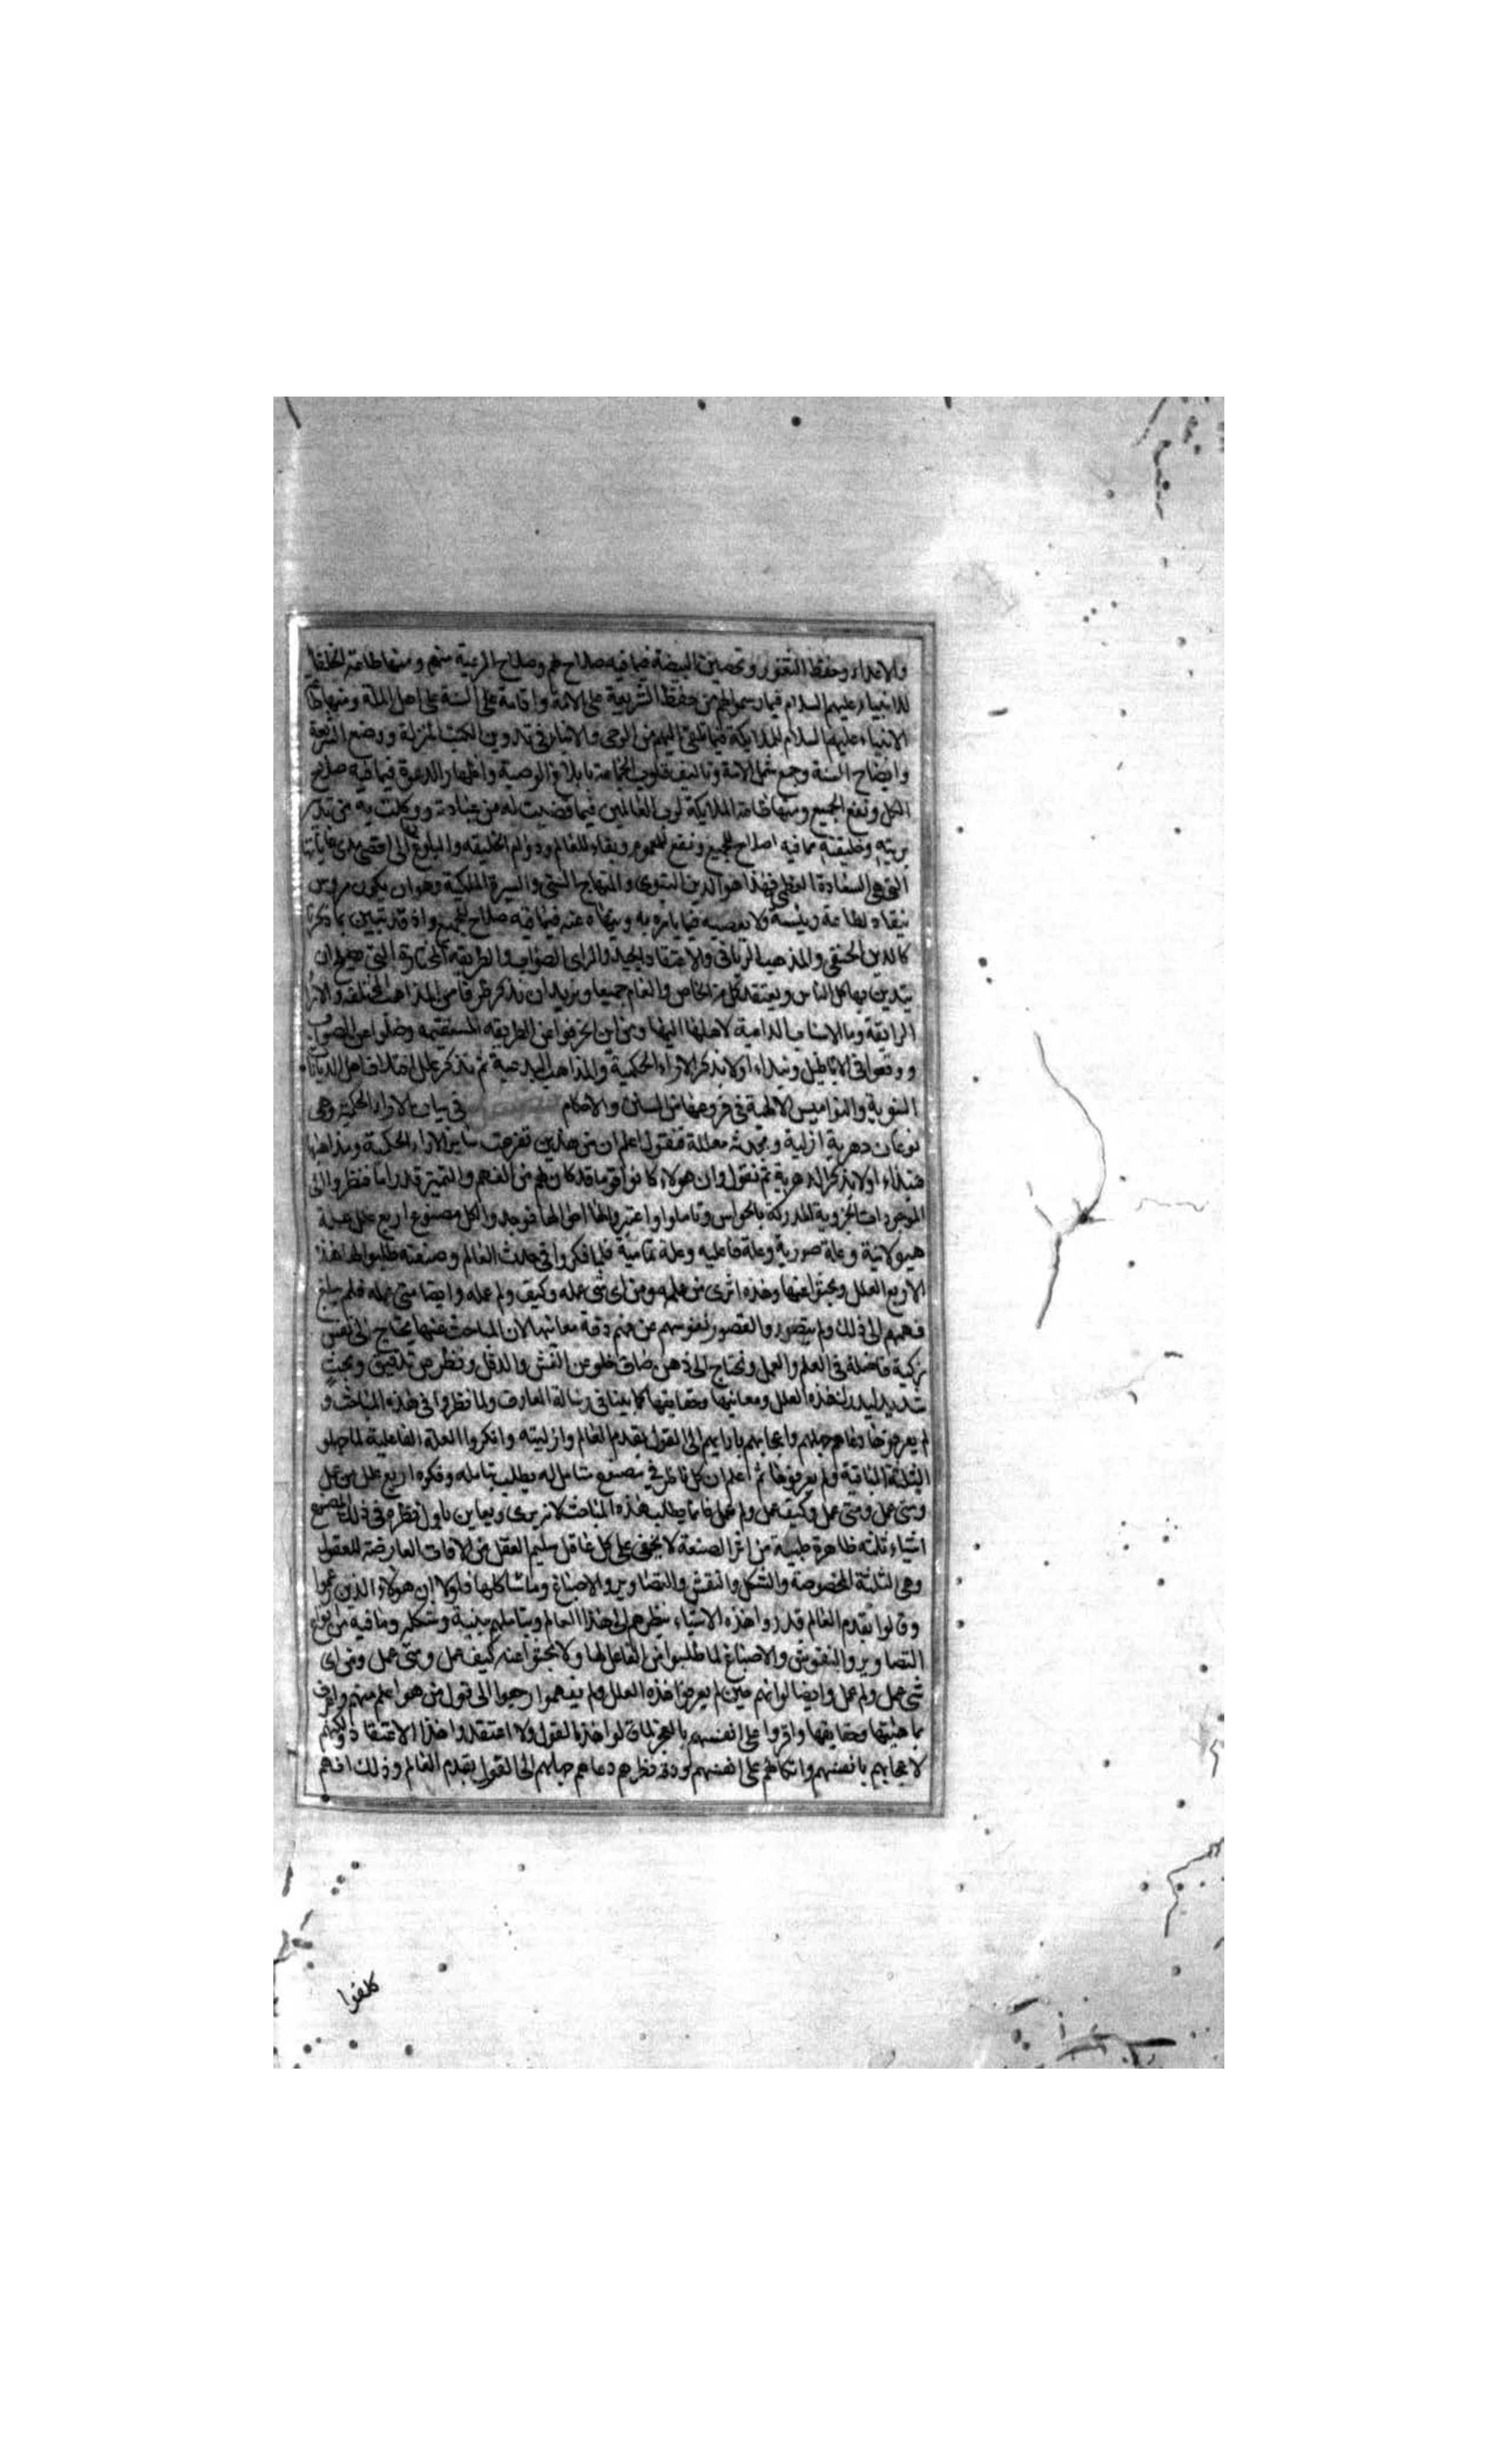 والاعداء وحفظ الثغور وتحصين البيضة فيما فيه صلاح لهم وصلاح الرعية منهم ومنها طاعة الخلفا
للانبياء عليهم السلام فيما رسموا لهم من حفظ الشريعة على الامة واقامة السنة على اهل الملة ومنها طاعة
الانبياء عليهم السلام للملايكة فيما تلقى اليهم من الوحى والانباء فى تدوين الكتب المنزلة ووضع الشريعة
وايضاح السنة وجمع شمل الامة وتاليف قلوب الجماعة بابلاغ الوصية واظهار الدعوة فيما فيه صلاح
الكل ونفع الجميع ومنها طاعة الملايكة لرب العالمين فيما قضيت له من عبادته ووكلت به من تدبير
بريته وخليقته مما فيه اصلاح الجميع ونفع للعموم وبقاء للعالم ودوام الخليقة والبلوغ الى اقصى مدى غاياتها
التى هى السعادة العظمى فهذا هو الدين النبوى والمنهاج السنى والسيرة الملكية وهو ان يكون مروس
ينقاد لطاعة رئيسه ولا يعصيه فيما يامره به وينهاه عنه فيما فيه صلاح للجميع واذ قد تبين بما ذكرنا
كالدين الحنفى والمذهب الربانى والاعتقاد الجيد والراى الصواب والطريقة المختارة التى هى ان
يتدين بها كل الناس ويعتقد كل من الخاص والعام جميعا ونريد ان نذكر طرفا من المذاهب المختلفة والاراء
الزايفة وما الاسباب الداعية لاهلها اليها ومن اين انحرفوا عن الطريقة المستقيمة وضلوا عن الصواب
ووقعوا فى الاباطيل ونبداء اولا بذكر الاراء الحكمية والمذاهب البدعية ثم نذكر علل اختلاف اهل الديانات
النبوية والنواميس الالهية فى فروعها من السنن والاحكام فى بيان الاراء الحكمية وهى
نوعان دهرية ازلية ومحدثة معللة فنقول اعلم ان من هذين تفرعت ساير الاراء الحكمية ومذاهبها
فنبداء اولا بذكر الدهرية ثم نقول وان هولاء كانوا قوما قد كان لهم من الفهم والتميز قدر اما فنظروا الى
الموجودات الجزوية المدركة بالحواس وتاملوا واعتبروا لها احوالها فوجدوا لكل مصنوع اربع علل علة
هيولانية وعلة صورية وعلة فاعليه وعلة تمامية فلما فكروا فى حدث العالم وصنعته طلبوا لها هذه
الاربع العلل وبحثوا عنها وهذه اترى من عمله ومن اى شى عمله وكيف ولم عمله وايضا متى عمله فلم يبلغ
فهمهم الى ذلك ولم يتصوروا لقصور نفوسهم عن فهم دقة معانيها لان المباحث عنها يحتاج الى نفس
زكية فاضلة فى العلم والعمل وتحتاج الى ذهن صاف خلو من الغش والدغل ونظر من تدقيق وبحث
شديد ليدرك هذه العلل ومعانيها وحقايقها كما بينا فى رسالة المعارف ولما نظروا فى هذه المباحث و
لم يعرفوها دعاهم جهلهم واعجابهم بارايهم الى القول بقدم العالم وازليته وانكروا العلة الفاعلية لما جهلو
الثلثة الباقية ولم يعرفوها ثم اعلم ان كل ناظر فى مصنوع متامل له يطلب بتامله وفكره اربع علل من عمل
ومتى عمل وكيف عمل ولم عمل فانما يطلب هذه المباحث لانه يرى ويعاين باول نظره فى ذلك المصنوع
اشياء ثلثه ظاهرة من اثر الصنعة لا يخفى على كل عاقل سليم العقل من الافات العارضة للعقول
وهى الثلثة المخصوصة والشكل والنقش والتصاوير والاصباغ وما شاكلها فلولا ان هولاء الذين زعموا
وقالوا بقدم العالم قد راوا هذه الاشياء بنظرهم الى هذا العالم وتاملهم بنية وشكله وما فيه من انواع
التصاوير والنقوش والاصباغ لما طلبوا من الفاعل لها ولا بحثوا عنه كيف عمل ومتى عمل ومن اى
شى عمل ولم عمل وايضا لو انهم حين لم يعرفوا هذه العلل ولم يفهموا رجعوا الى قول من هو اعلم منهم واعرف
بماهيتها وحقايقها واقروا على انفسهم بالعجز لما قالوا هذا القول ولا اعتقدوا هذا الاعتقاد ولكنهم
لاعجابهم بانفسهم واتكالهم على انفسهم ودقة نظرهم دعاهم جهلهم الى القول بقدم العالم وذلك انهم
كلفوا